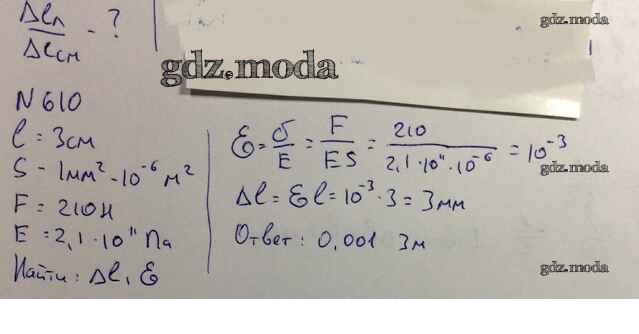 Δlл / Δlсм - ?
gdz.moda
gdz.moda
N 610
l = 3см
S - 1мм² - 10⁻⁶ м²
F = 210н
E = 2,1 · 10¹¹ Па
Найти: Δl, ℰ
ℰ = σ/E = F/ES = 210 / 2,1 · 10¹¹ · 10⁻⁶ = 10⁻³
gdz.moda
Δl = ℰl = 10⁻³ · 3 = 3мм
Ответ: 0,001 3м
gdz.moda